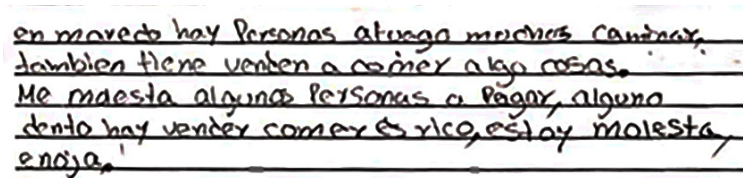 en mavedo hay Personas atuago muches caminar,
tambien tiene venten a comer algo cosas.
Me maesta algunas Personas a Pagar, alguno
dento hay vender comer es rico, estoy molesta,
enoja.